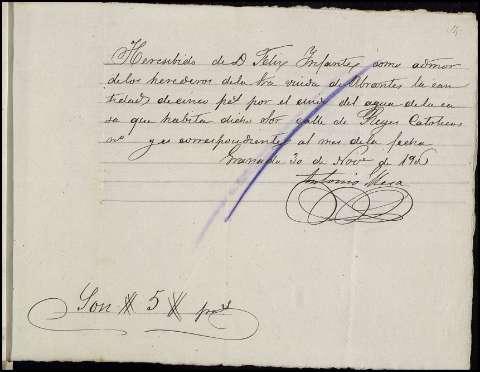 He recibido de D Felix Infantes como admor
de los herederos de la Sra viuda de Abrantes la can
tidad de cinco pts por el del agua de la ca
sa que habita dicho Sor calle de Reyes Catolicos
no y es correspondiente al mes de la fecha
Granada 30 de Nov de
Antonio Mesa
Son # 5 # pts